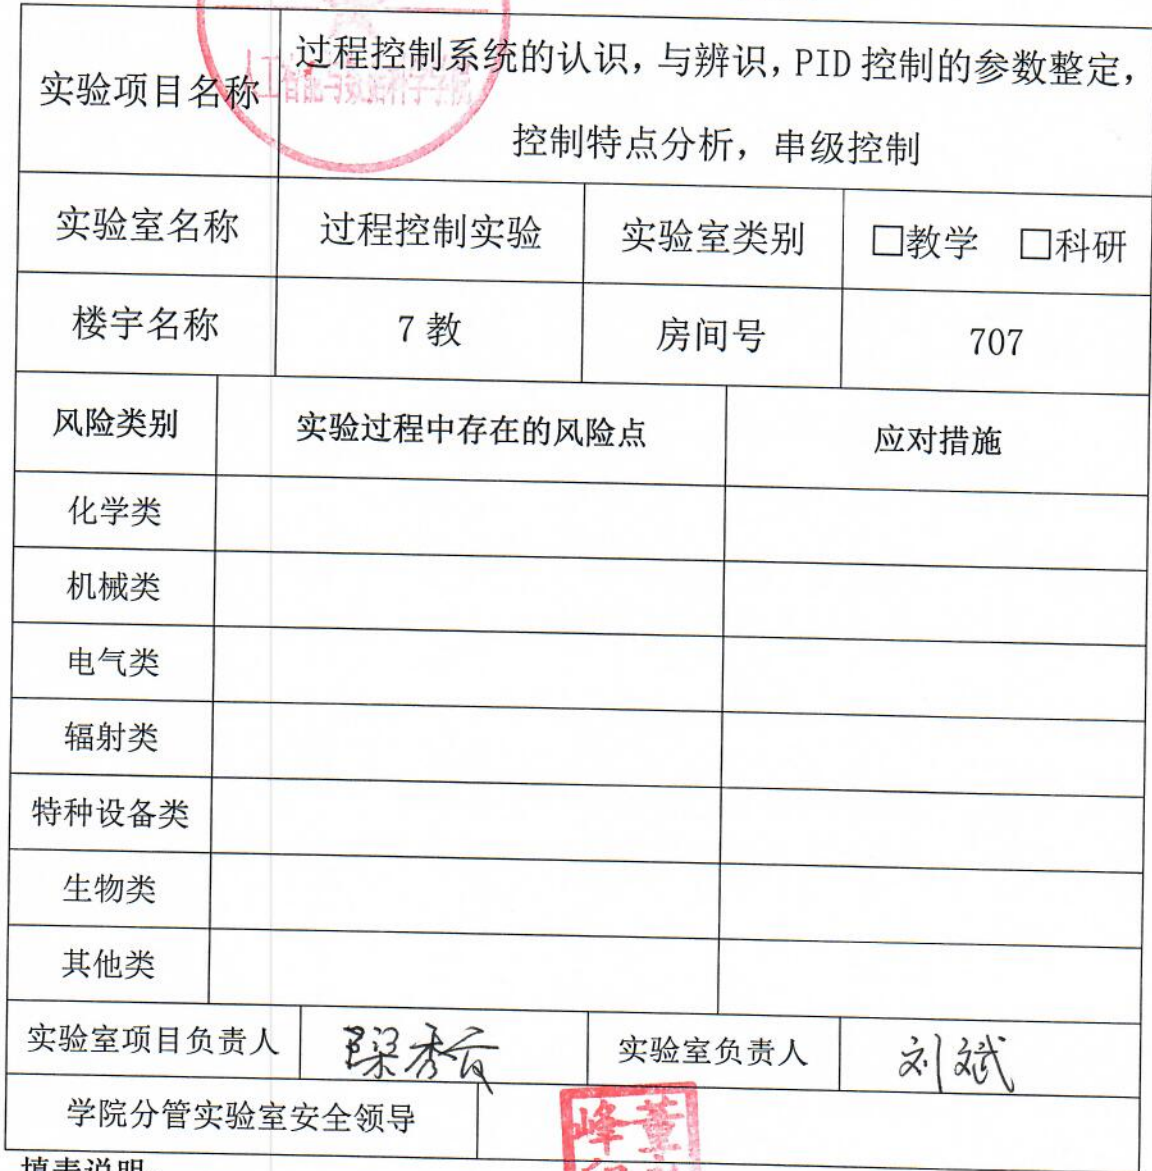 实验项目名称
过程控制系统的认识，与辨识，PID 控制的参数整定，
控制特点分析，串级控制
实验室名称 过程控制实验 实验室类别 □教学 □科研
楼宇名称 7 教 房间号 707
风险类别 实验过程中存在的风险点 应对措施
化学类
机械类
电气类
辐射类
特种设备类
生物类
其他类
实验室项目负责人 实验室负责人 刘斌
学院分管实验室安全领导
董峰
填表说明